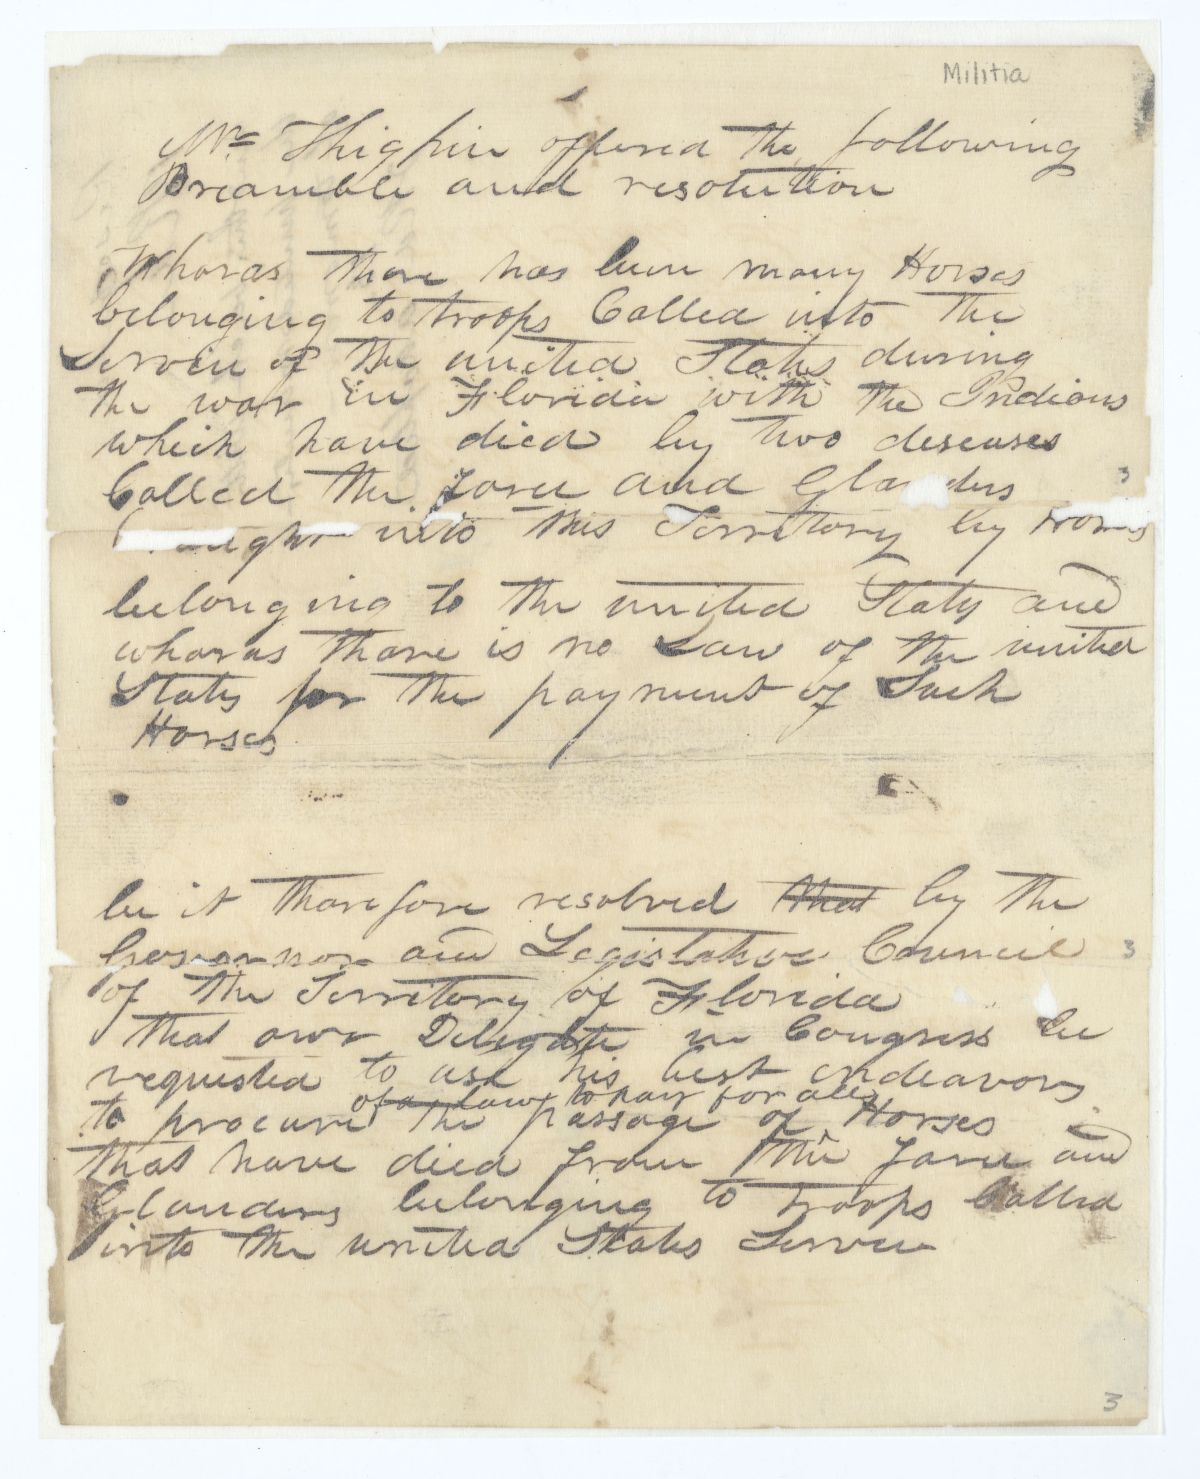 Militia
Mr. Thigpin offered the following
Preamble and resolution
Wharas thare has been many Horses
belonging to troops Called into the
Service of the united States during
the war in Florida with the Indians
which have died by two deseases
Called the farcu and Gla ders
ught into this Territory by Horses
belonging to the united States and
wharas thare is no Law of the united
States for the payment of Such
Horses
be it tharefore resolved that by the
Governor and Legislative Council
of the Territory of Florida
that owr Delegate in Congress be
requested to use his best endeavors
of a law to pay for all
to procure the passage of Horses
that have died from the farcu and
Glanders belonging to troops Called
into the united States Service
3
3
3